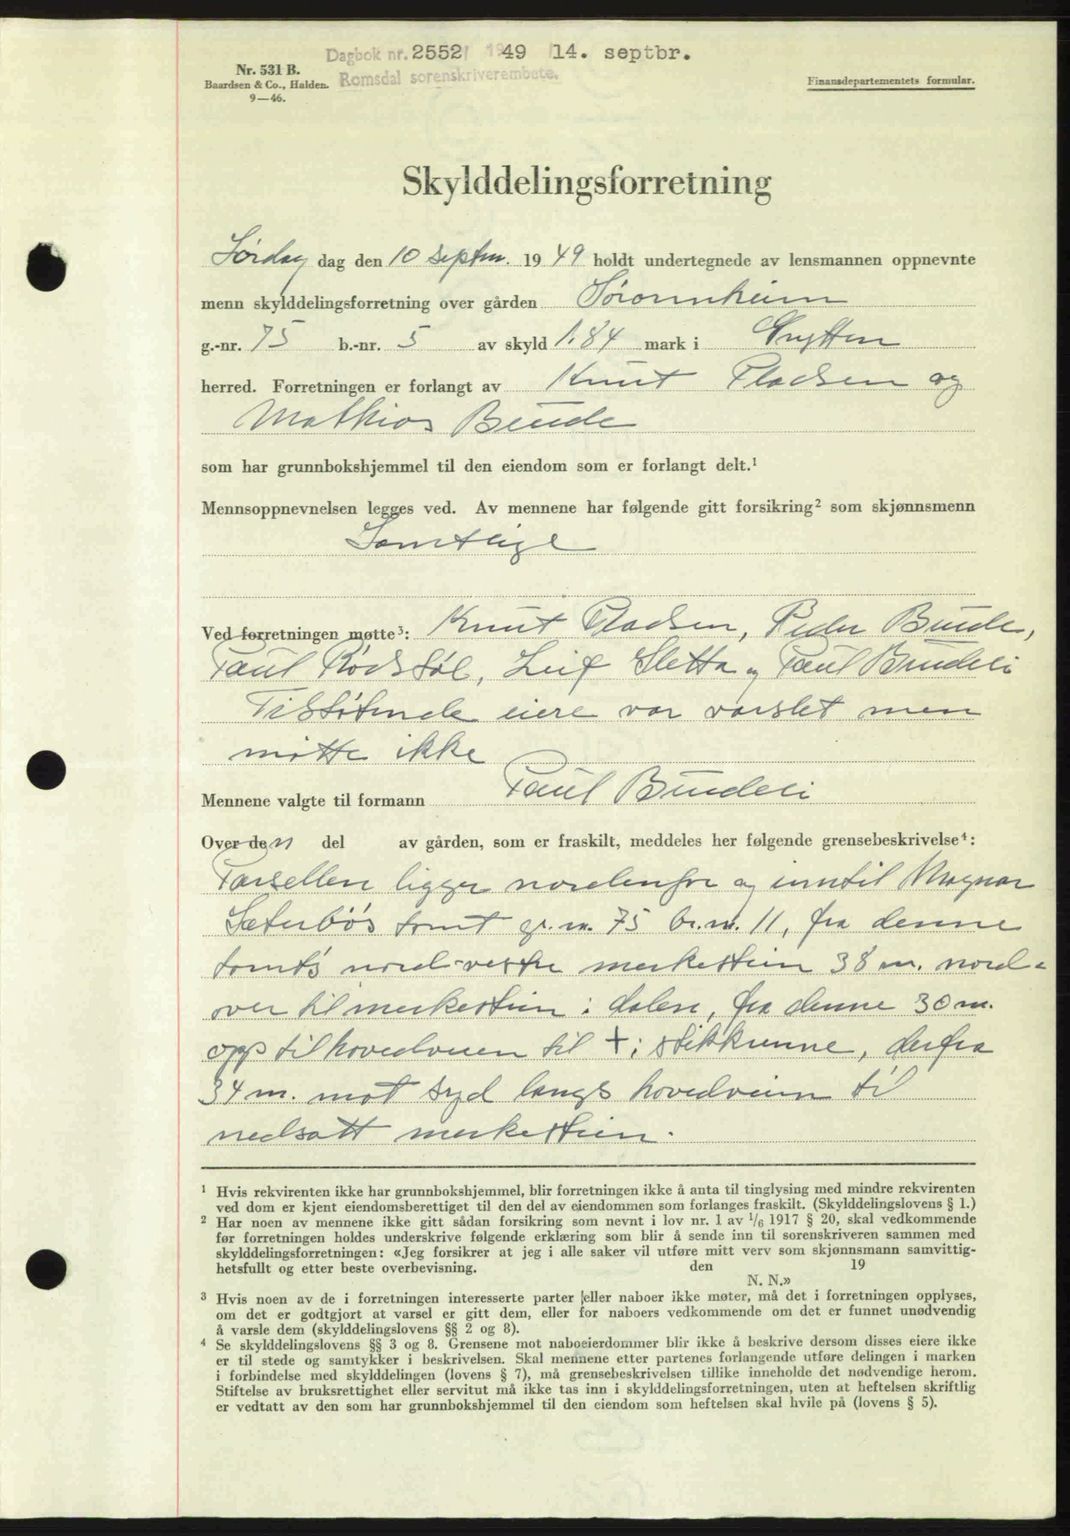 Dagbok nr. 2552 1949 14. septbr.
Romsdal sorenskriverembete.
Nr. 531 B.
Baardsen & Co., Halden.
9—46.
Finansdepartementets formular.
Skylddelingsforretning
Lördag dag den 10 septm. 1949 holdt undertegnede av lensmannen oppnevnte
menn skylddelingsforretning over gården
g.-nr. 75 b.-nr. 5 av skyld 1.84 mark i Grytten
herred. Forretningen er forlangt av Knut Pladsen og
Mathias Bende
som har grunnbokshjemmel til den eiendom som er forlangt delt.¹
Mennsoppnevnelsen legges ved. Av mennene har følgende gitt forsikring² som skjønnsmenn
Samtlige
Ved forretningen møtte³: Knut Pladsen, Peder
Paul Rödstöl, Leif Sletta og Paul Brudeli
Tilstötende eiere var varslet men
mötte ikke
Mennene valgte til formann Paul Brudeli
Over den del av gården, som er fraskilt, meddeles her følgende grensebeskrivelse⁴:
Parsellen ligger nordenfor og inntil Magnar
Seterbö's tomt gr. nr. 75 br. nr. 11, fra denne
tomt's nord-vestre merkestein 38 m. nord-
over til merkestein i dalen, fra denne 30 m.
opp til hovedveien til + i stikkrenne, derfra
34 m. mot syd langs hovedveien til
nedsatt merkestein.
¹ Hvis rekvirenten ikke har grunnbokshjemmel, blir forretningen ikke å anta til tinglysing med mindre rekvirenten
ved dom er kjent eiendomsberettiget til den del av eiendommen som forlanges fraskilt. (Skylddelingslovens § 1.)
² Har noen av mennene ikke gitt sådan forsikring som nevnt i lov nr. 1 av 1/6 1917 § 20, skal vedkommende
før forretningen holdes underskrive følgende erklæring som blir å sende inn til sorenskriveren sammen med
skylddelingsforretningen: «Jeg forsikrer at jeg i alle saker vil utføre mitt verv som skjønnsmann samvittig-
hetsfullt og etter beste overbevisning. den 19
N. N.»
³ Hvis noen av de i forretningen interesserte parter eller naboer ikke møter, må det i forretningen opplyses,
om det er godtgjort at varsel er gitt dem, eller for naboers vedkommende om det er funnet unødvendig
å varsle dem (skylddelingslovens §§ 2 og 8).
⁴ Se skylddelingslovens §§ 3 og 8. Grensene mot naboeierdommer blir ikke å beskrive dersom disses eiere ikke
er til stede og samtykker i beskrivelsen. Skal mennene etter partenes forlangende utføre delingen i marken
i forbindelse med skylddelingen (lovens § 7), må grensebeskrivelsen tillike inneholde det nødvendige herom.
Stiftelse av bruksrettighet eller servitut må ikke tas inn i skylddelingsforretningen, uten at heftelsen skriftlig
er vedtatt av den som har grunnbokshjemmel til den eiendom som heftelsen skal hvile på (lovens § 5).